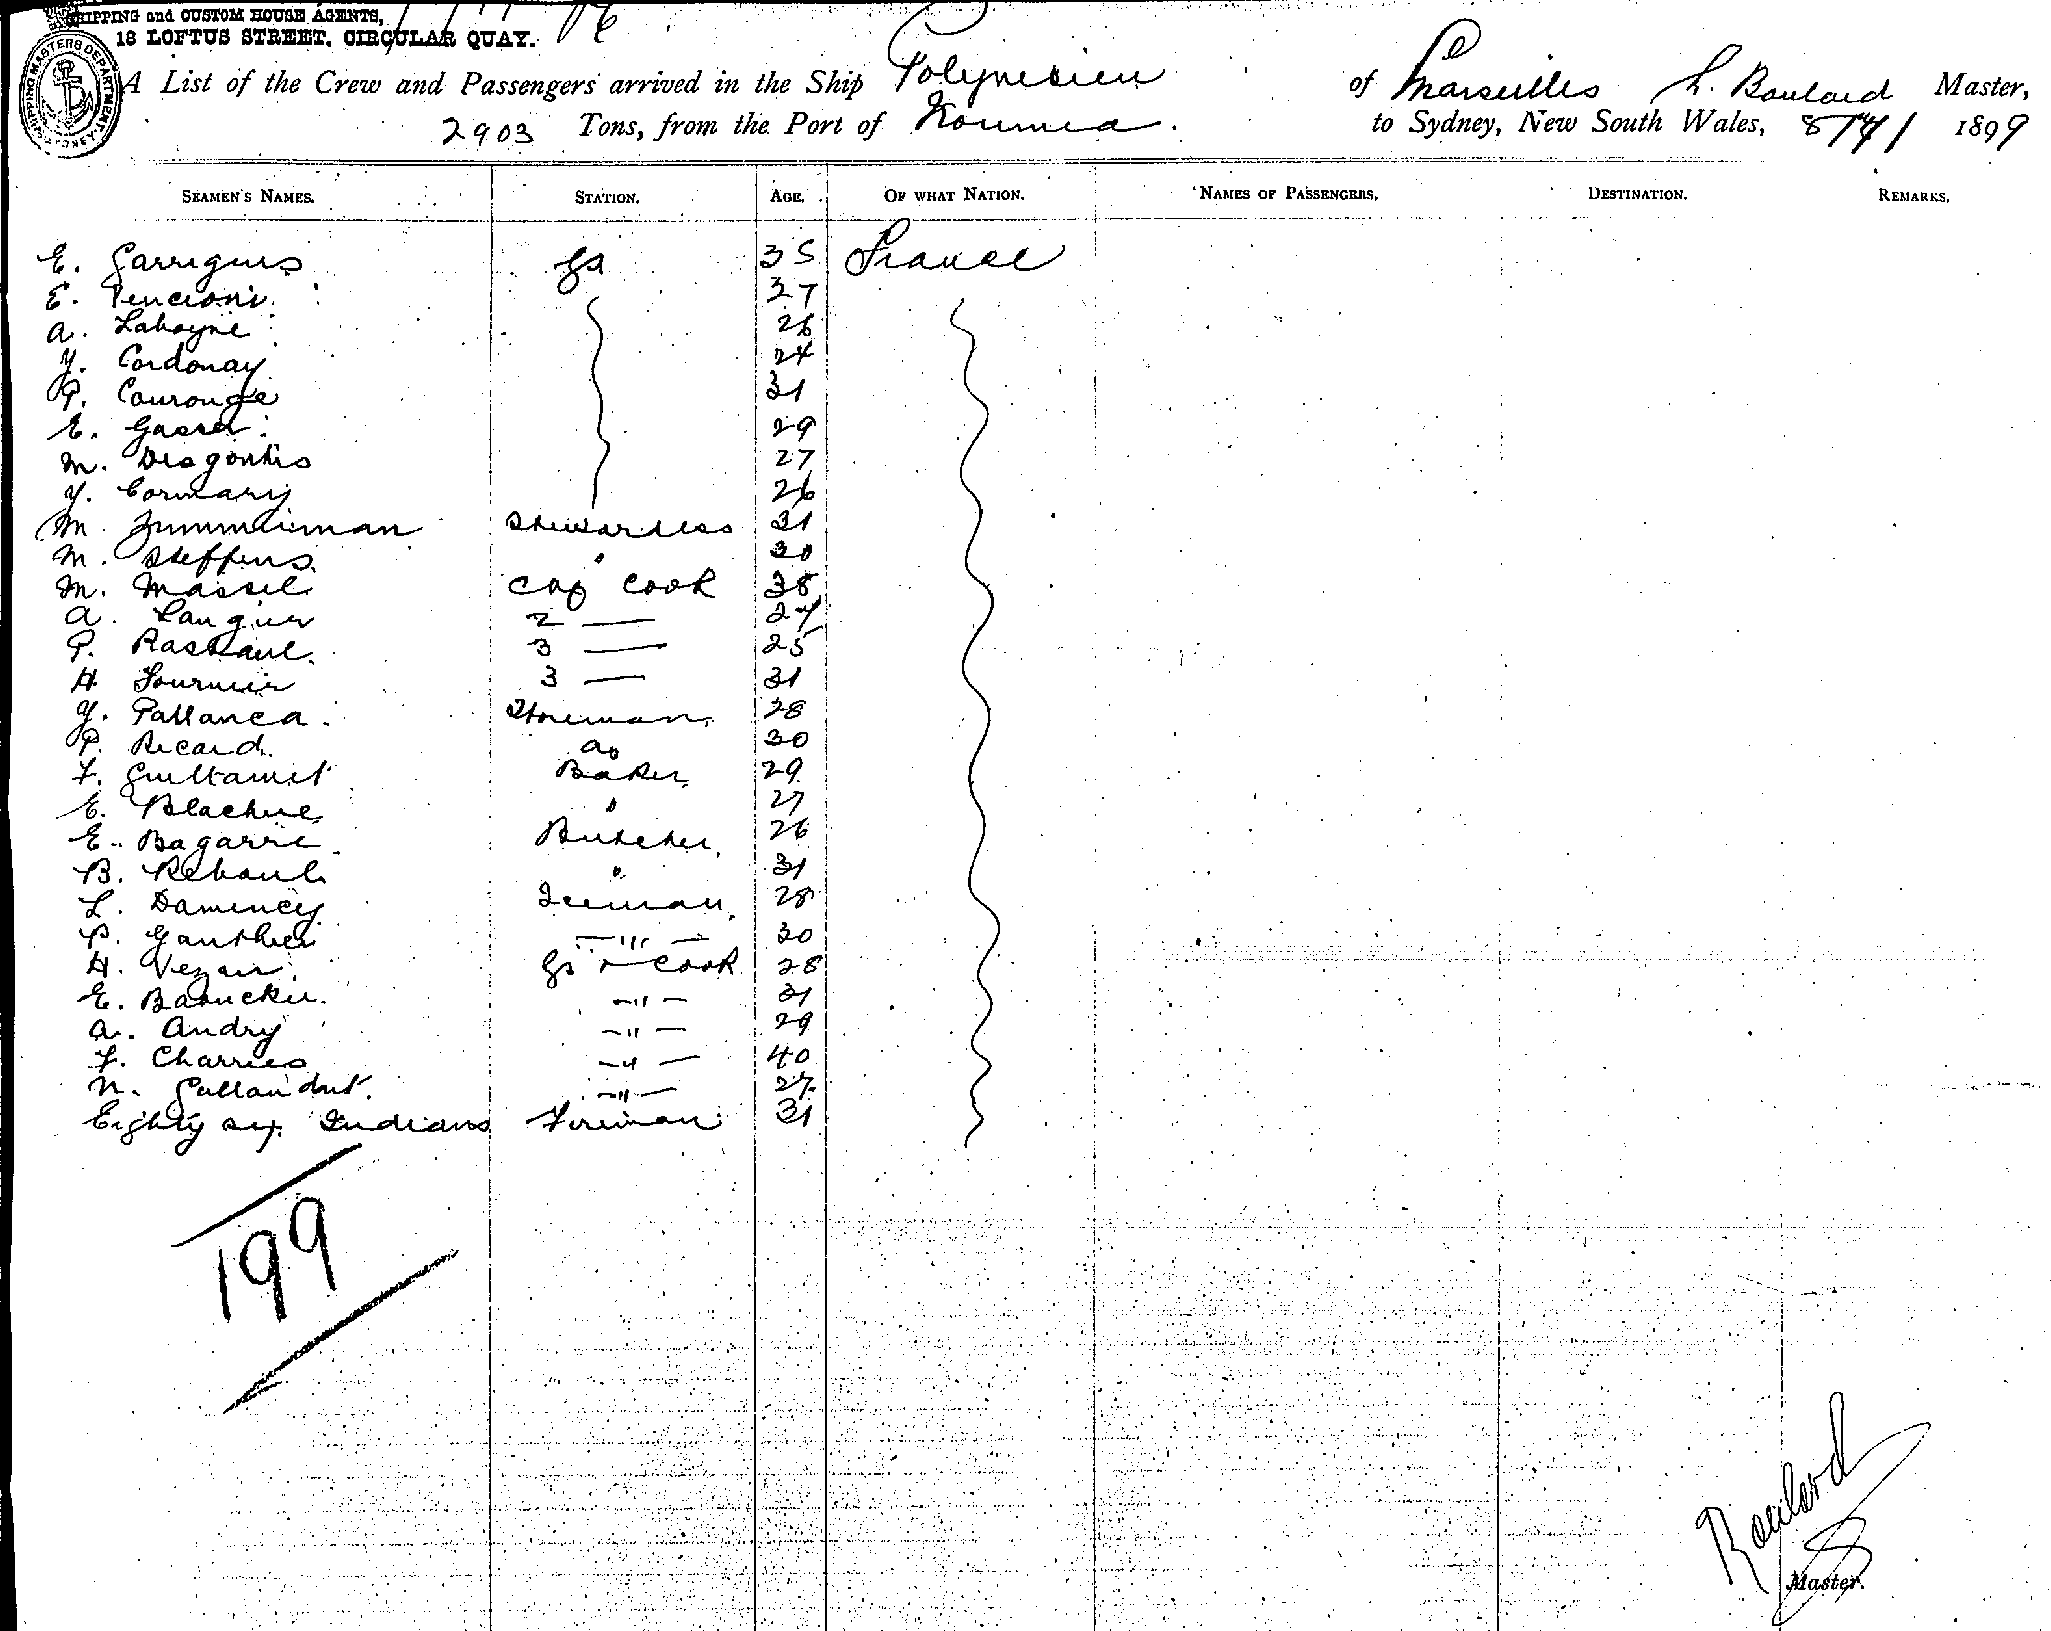 SHIPPING and CUSTOM HOUSE AGENTS,
18 LOFTUS STREET, CIRCULAR QUAY.
A List of the Crew and Passengers arrived in the Ship Polynesien of Marseilles L. Boulard Master,
2903 Tons, from the Port of Noumea. to Sydney, New South Wales, 1899
SEAMEN'S NAMES. STATION. AGE. OF WHAT NATION. NAMES OF PASSENGERS. DESTINATION. REMARKS.
E. Garrigues 35 France
E. Pencioni 27
A. Lahoyne 26
Y. Cordonay 24
P. Couronge 31
E. 29
M. 27
Y. Cormary 26
M. Zimmerman Stewardess 31
M. Steffens " 30
M. Massel Cook 38
A. Laugier 2 — 27
P. 3 — 25
H Fournier 3 — 31
Y. Pallanca Storeman 28
P. Ricard. do 30
F. Baker 29
E. Blachere " 27
E. Bagarre Butcher 26
B. Reboul " 31
L. Daminey 28
P. Gauthier —"— 30
H. Cook 28
E. —"— 31
A. Andry —"— 29
F. Charries —"— 40
N. Gallandut —"— 27
Eighty six Indians Fireman 31
199
Boulard
Master.